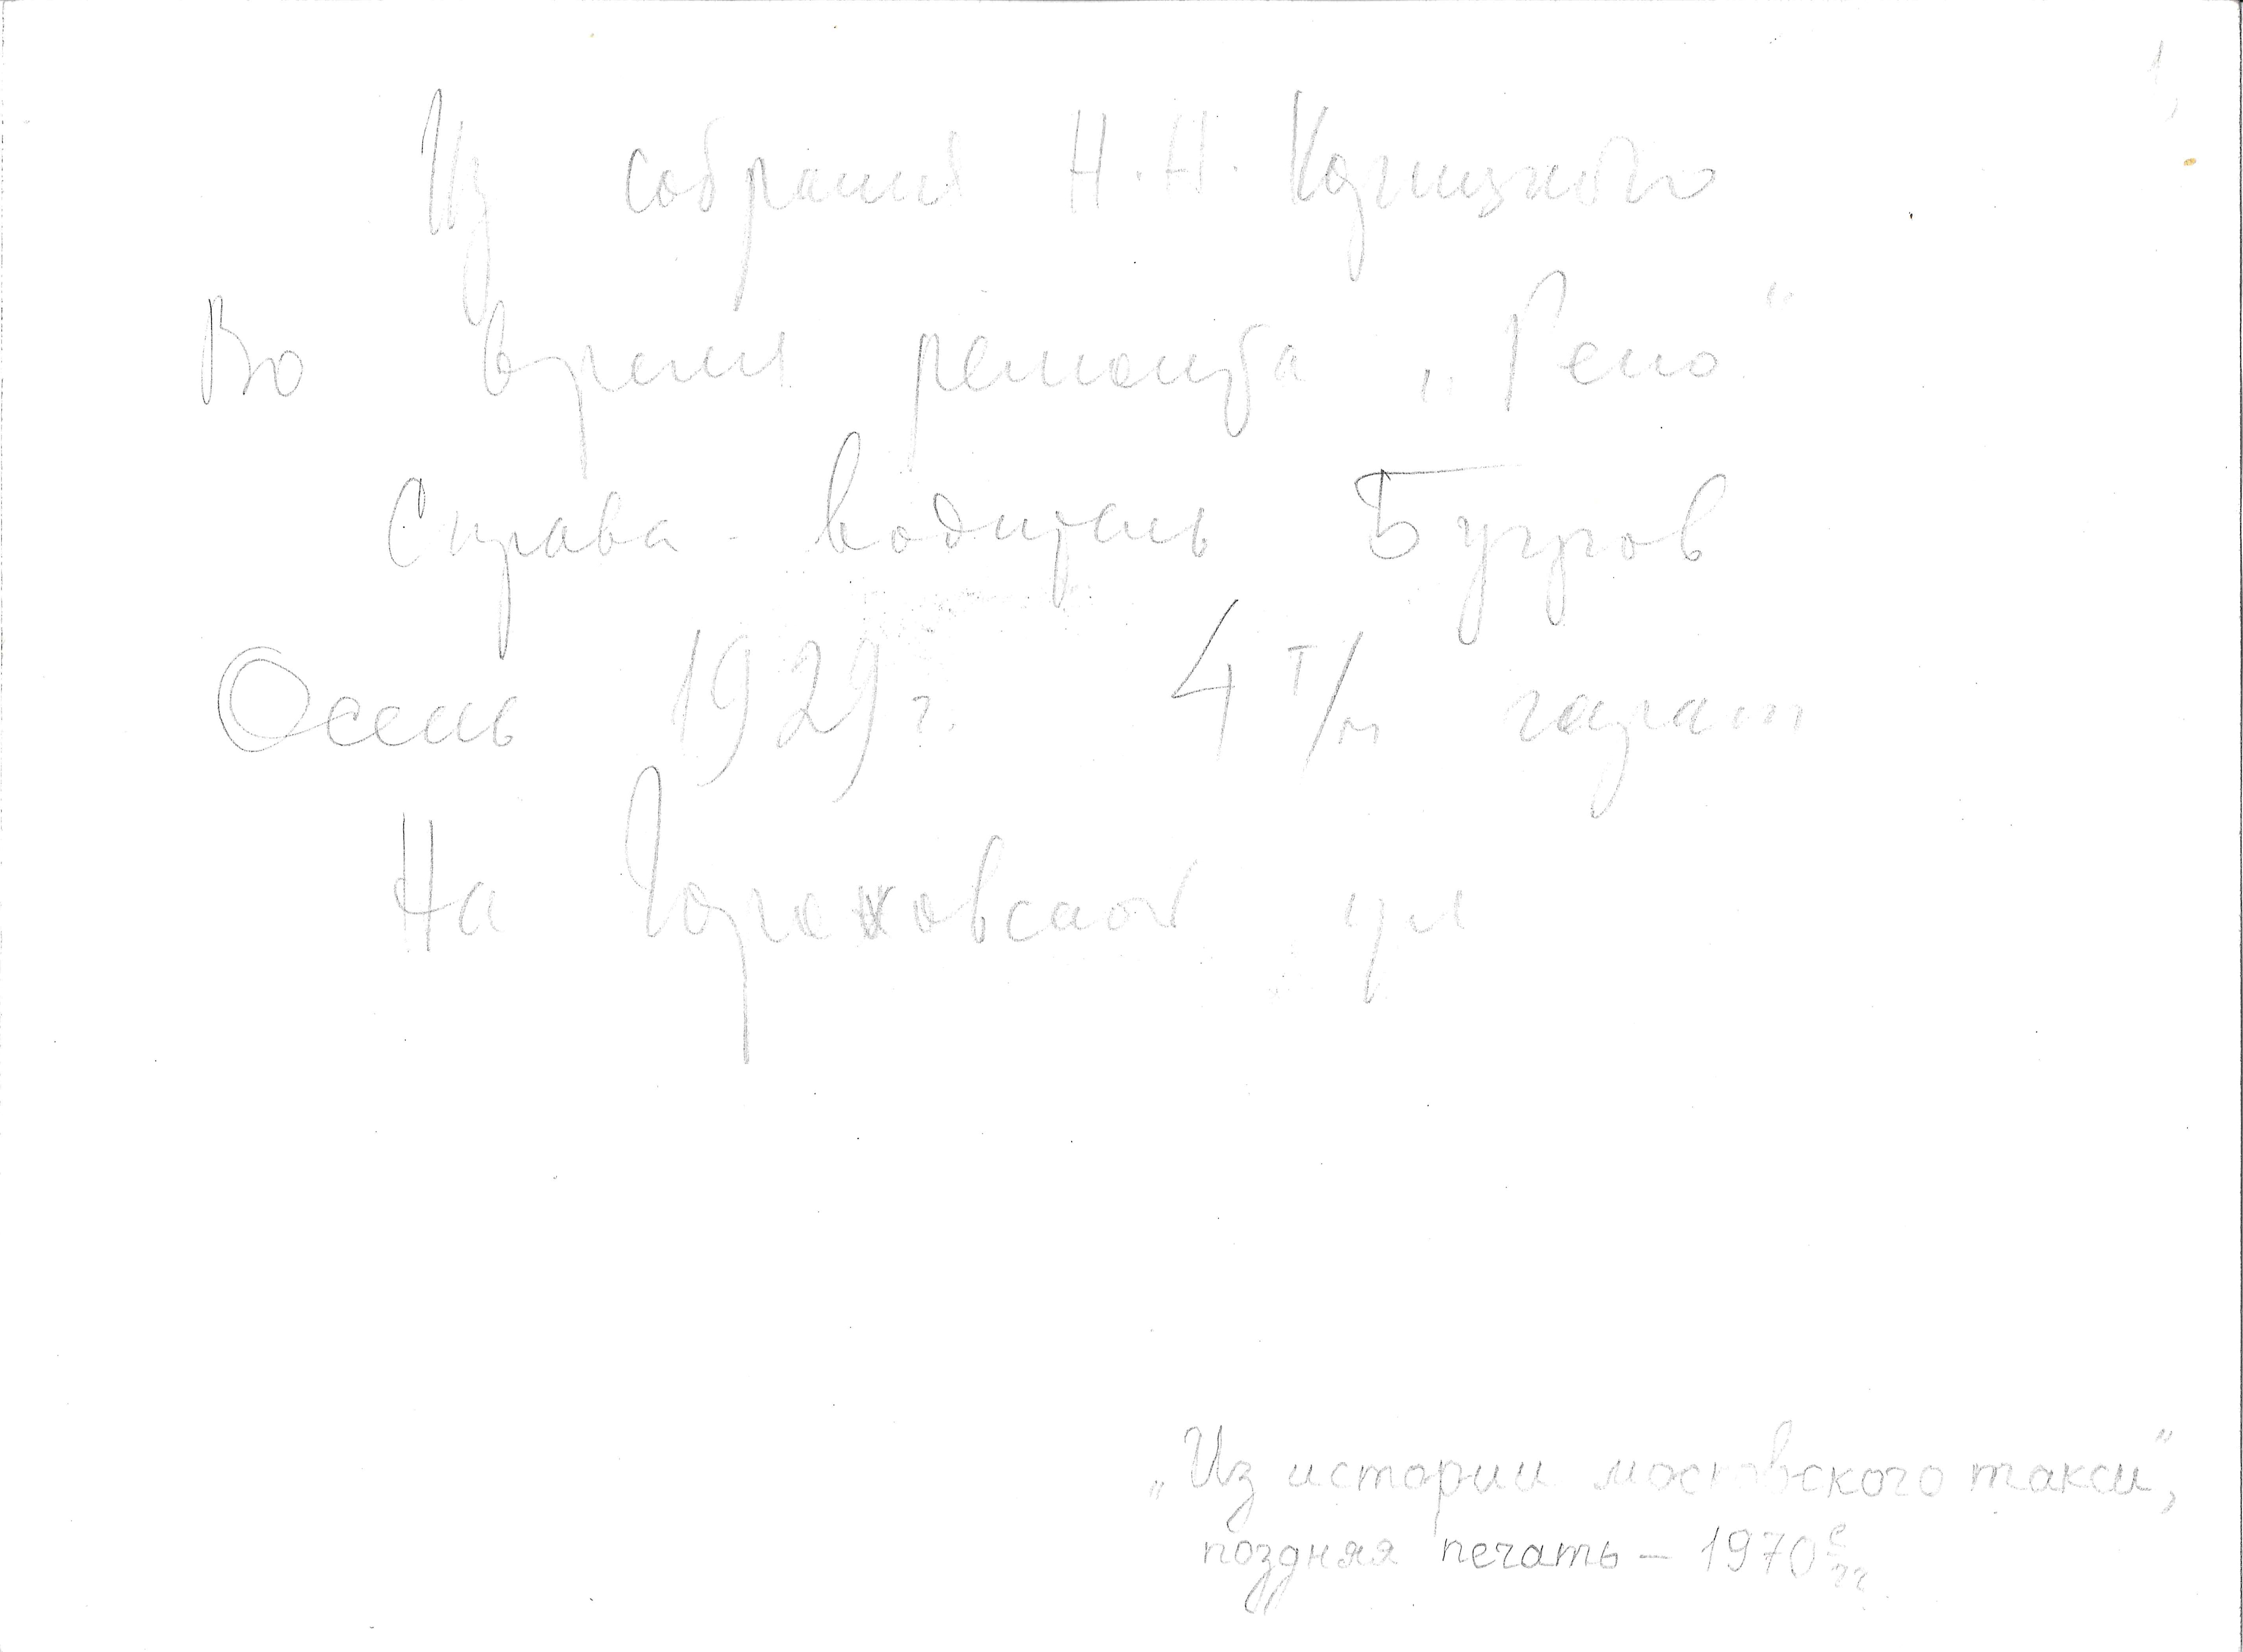 Из собрания Н.Н.
Во время ремонта „Рено"
Справа - водитель Бугров
Осень 1929 г. 4 т/м гараж
На Гороховской ул
„Из истории московского такси",
поздняя печать – 1970е гг.